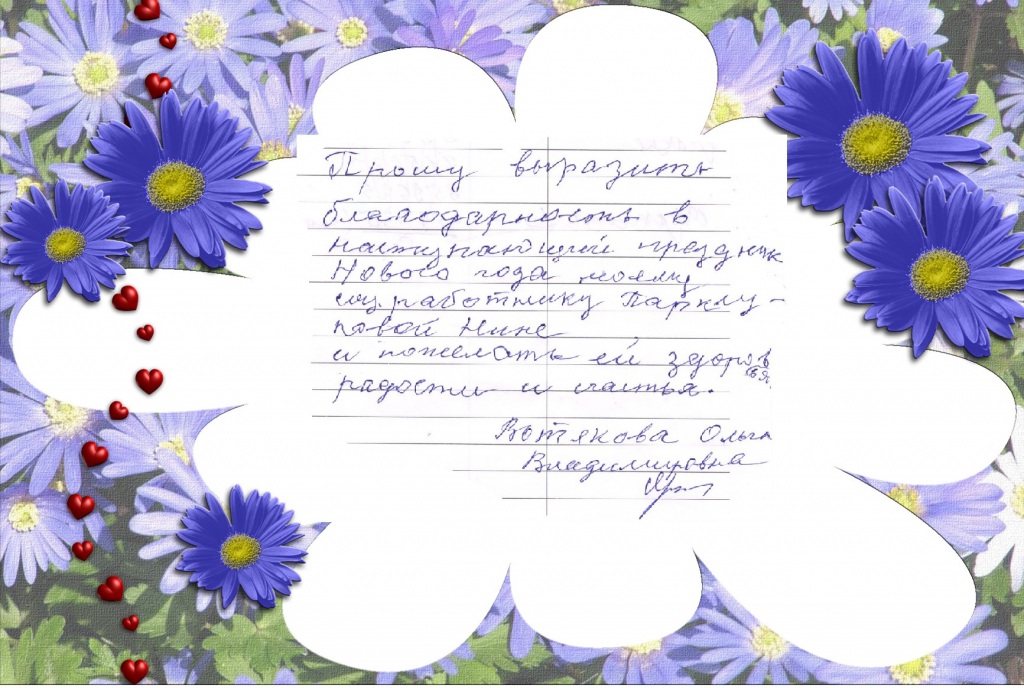 Прошу выразить
благодарность в
наступающий праздник
Нового года моему
соц. работнику
и пожелать ей здоровья
радости и счастья.
Вотякова Ольга
Владимировна